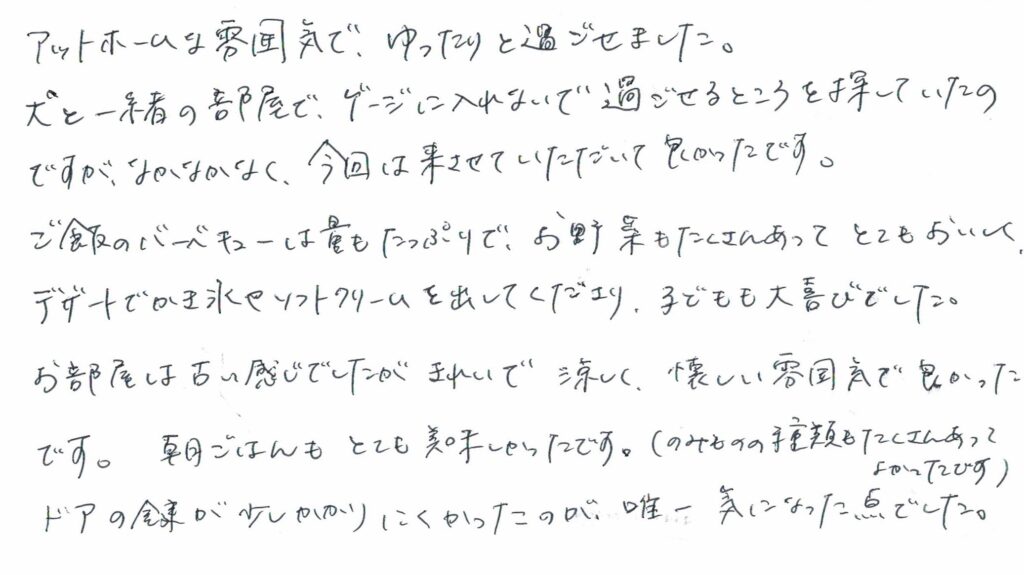 アットホームな雰囲気で、ゆったりと過ごせました。
犬と一緒の部屋で、ゲージに入れないで過ごせるところを探していたの
ですが、なかなかなく、今回は来させていただいて良かったです。
ご飯のバーベキューは量もたっぷりで、お野菜もたくさんあってとてもおいしく、
デザートでかき氷やソフトクリームを出してくださり、子どもも大喜びでした。
お部屋は古い感じでしたがきれいで涼しく、懐しい雰囲気で良かった
です。 朝ごはんもとても美味しかったです。(のみものの種類もたくさんあって
よかったです)
ドアの鍵が少しかかりにくかったのが、唯一気になった点でした。